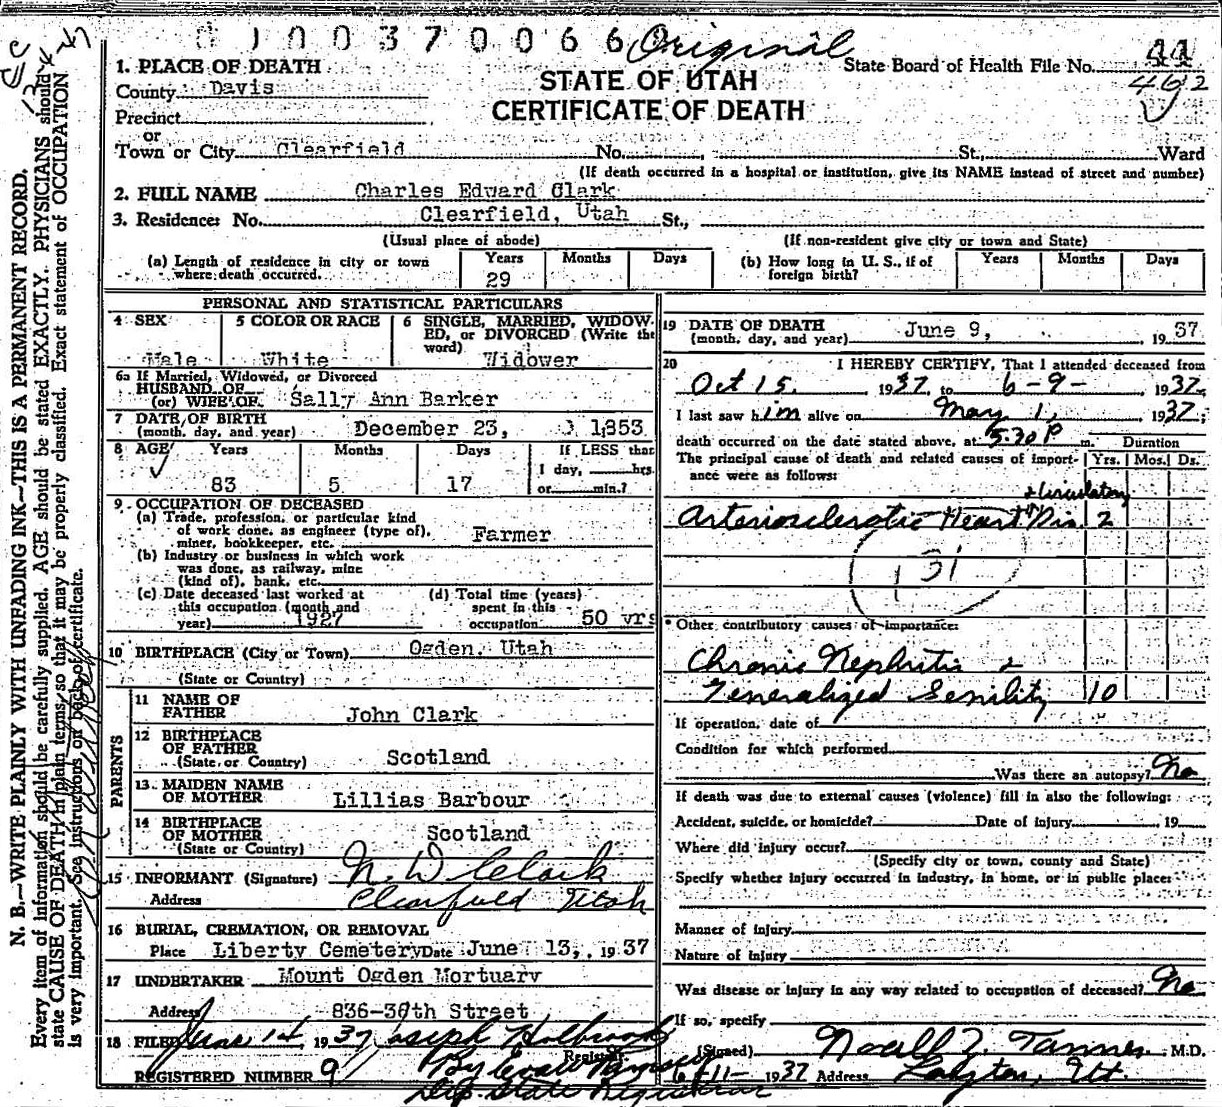 0 1 0 0 3 7 0 0 6 6 Original
State Board of Health File No. 41
462
STATE OF UTAH
CERTIFICATE OF DEATH
1. PLACE OF DEATH
County Davis
Precinct
or
Town or City Clearfield No. , St., Ward
(If death occurred in a hospital or institution, give its NAME instead of street and number)
2. FULL NAME Charles Edward Clark
3. Residence: No. Clearfield, Utah St.,
(Usual place of abode) (If non-resident give city or town and State)
(a) Length of residence in city or town where death occurred. Years 29 Months Days
(b) How long in U. S., if of foreign birth? Years Months Days
PERSONAL AND STATISTICAL PARTICULARS
4 SEX Male
5 COLOR OR RACE White
6 SINGLE, MARRIED, WIDOWED, or DIVORCED (Write the word) Widower
6a If Married, Widowed, or Divorced
HUSBAND OF
(or) WIFE OF Sally Ann Barker
7 DATE OF BIRTH
(month, day, and year) December 23, 1853
8 AGE Years 83 Months 5 Days 17 If LESS than 1 day, hrs. or min.?
9 OCCUPATION OF DECEASED
(a) Trade, profession, or particular kind
of work done, as engineer (type of),
miner, bookkeeper, etc. Farmer
(b) Industry or business in which work
was done, as railway, mine
(kind of), bank, etc.
(c) Date deceased last worked at
this occupation (month and
year) 1927
(d) Total time (years)
spent in this
occupation 50 yrs
10 BIRTHPLACE (City or Town) Ogden, Utah
(State or Country)
PARENTS
11 NAME OF
FATHER John Clark
12 BIRTHPLACE
OF FATHER
(State or Country) Scotland
13 MAIDEN NAME
OF MOTHER Lillias Barbour
14 BIRTHPLACE
OF MOTHER
(State or Country) Scotland
15 INFORMANT (Signature) N. W Clark
Address Clearfield Utah
16 BURIAL, CREMATION, OR REMOVAL
Place Liberty Cemetery Date June 13, 1937
17 UNDERTAKER Mount Ogden Mortuary
Address 836-30th Street
18 FILED June 14, 1937 Joseph Holbrook
Registrar
REGISTERED NUMBER 9 By
Dep. State Registrar
19 DATE OF DEATH
(month, day, and year) June 9, 1937
20 I HEREBY CERTIFY, That I attended deceased from
Oct 15, 1937 to 6-9-, 1937.
I last saw him alive on May 1, 1937;
death occurred on the date stated above, at 5:30 P m. Duration
The principal cause of death and related causes of importance were as follows: Yrs. Mos. Ds.
& Circulatory
Arteriosclerotic Heart Dis. 2
131
Other contributory causes of importance:
Chronic Nephritis &
Generalized Senility 10
If operation, date of
Condition for which performed
Was there an autopsy? No
If death was due to external causes (violence) fill in also the following:
Accident, suicide, or homicide? Date of injury 19
Where did injury occur?
(Specify city or town, county and State)
Specify whether injury occurred in industry, in home, or in public place:
Manner of injury
Nature of injury
Was disease or injury in any way related to occupation of deceased? No
If so, specify
(Signed) Noall Z. Tanner M.D.
6-11- 1937 Address Layton, Ut.
N. B.—WRITE PLAINLY WITH UNFADING INK—THIS IS A PERMANENT RECORD.
Every item of information should be carefully supplied. AGE should be stated EXACTLY. PHYSICIANS should
state CAUSE OF DEATH in plain terms, so that it may be properly classified. Exact statement of OCCUPATION
is very important. See instructions on back of certificate.